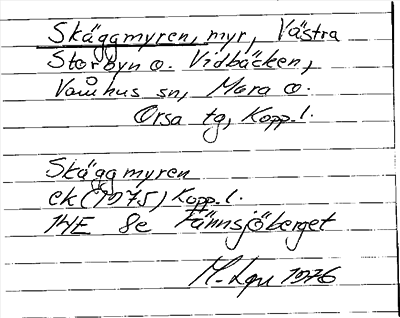 Skäggmyren, myr, Västra
Storbyn o. Vidbäcken,
Våmhus sn, Mora o.
Orsa tg, Kopp.l.
Skäggmyren
ek (1975) Kopp.l.
14E 8e Fännsjöberget
1976